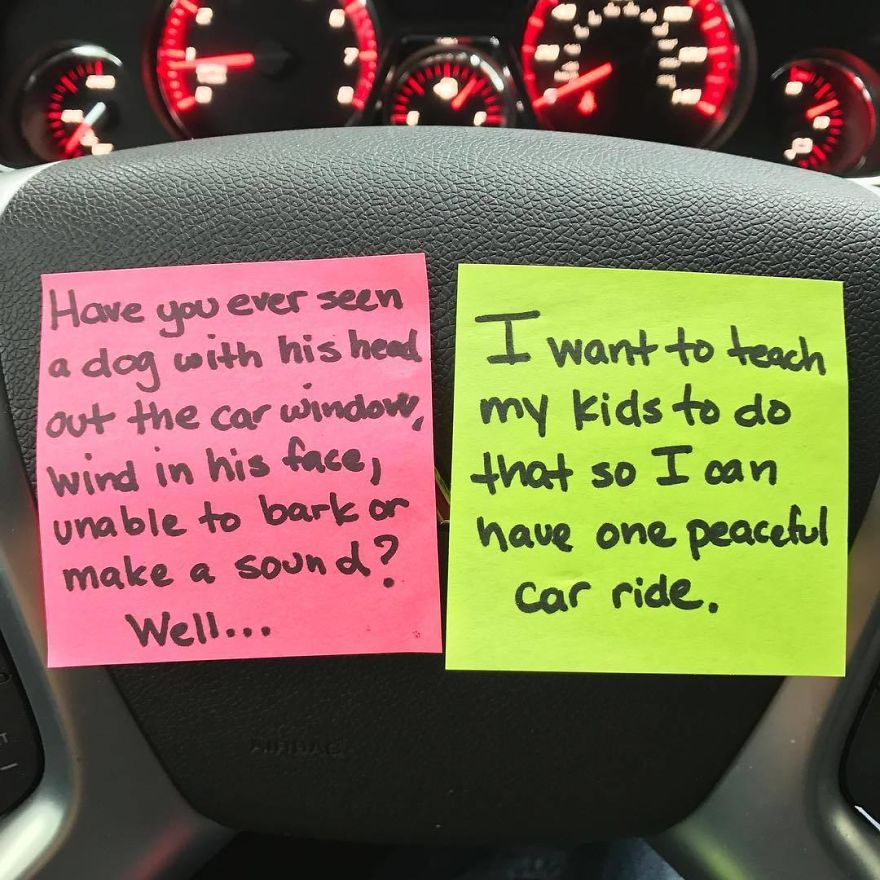 Have you ever seen
a dog with his head
out the car window,
wind in his face,
unable to bark or
make a sound?
Well...
I want to teach
my kids to do
that so I can
have one peaceful
car ride.
AIRBAG